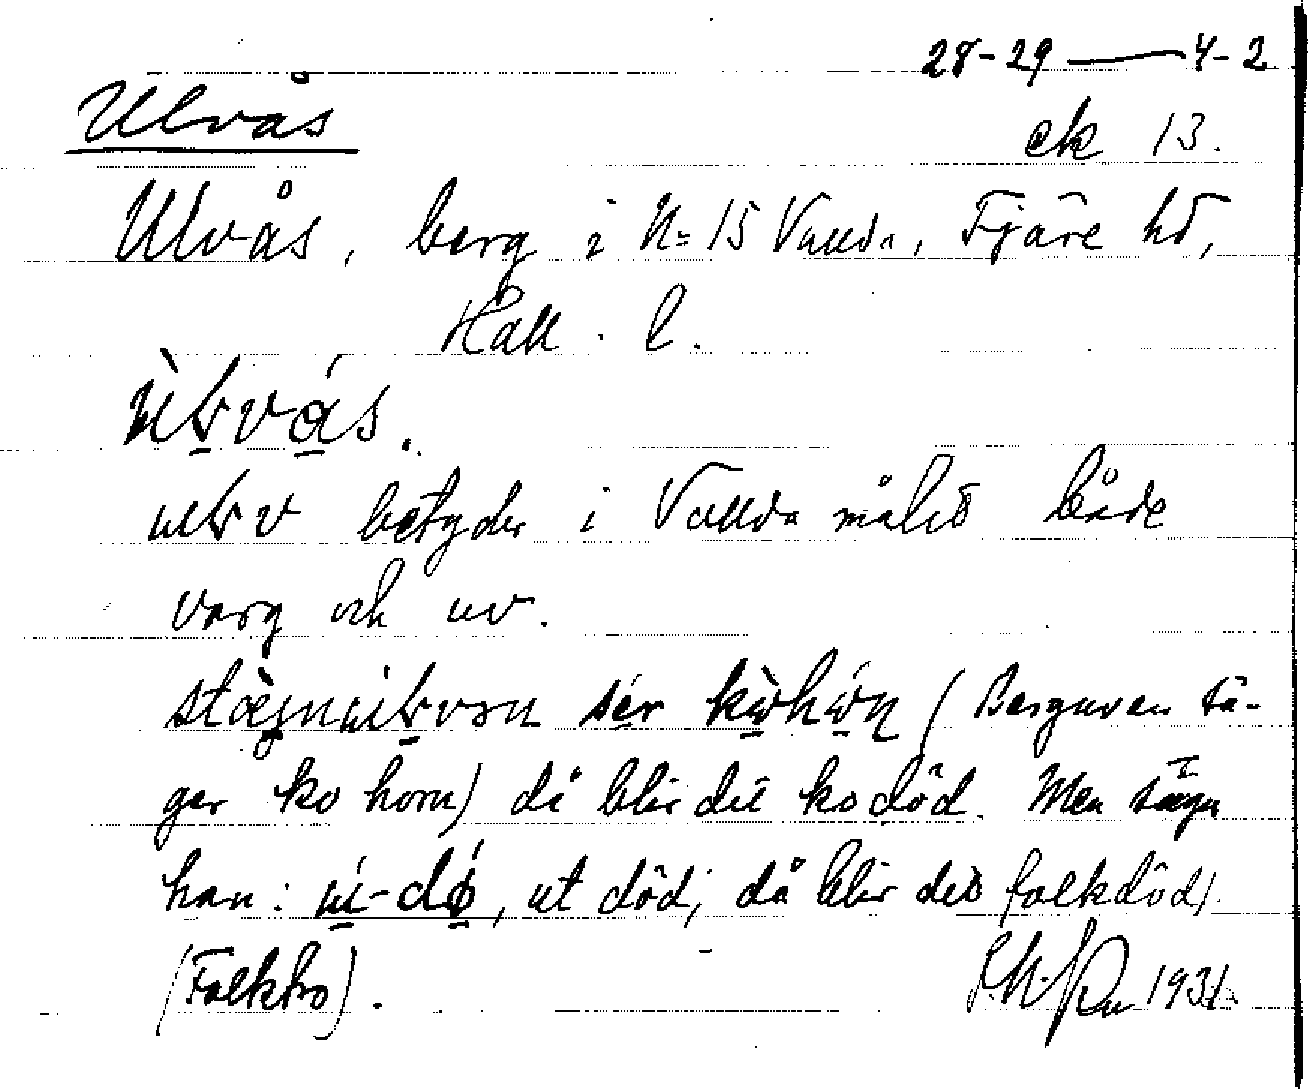 28-29 — 4-2
Ulvås
ek 13.
Ulvås, berg i N= 15 Vallda, Fjäre hd,
Hall. l.
betyder i Vallda målet både
varg och uv.
(Berguven sä-
ger ko horn) då blir det kodöd. Men säger
han: ut död; då blir det folkdöd.
(Folktro).
1931.